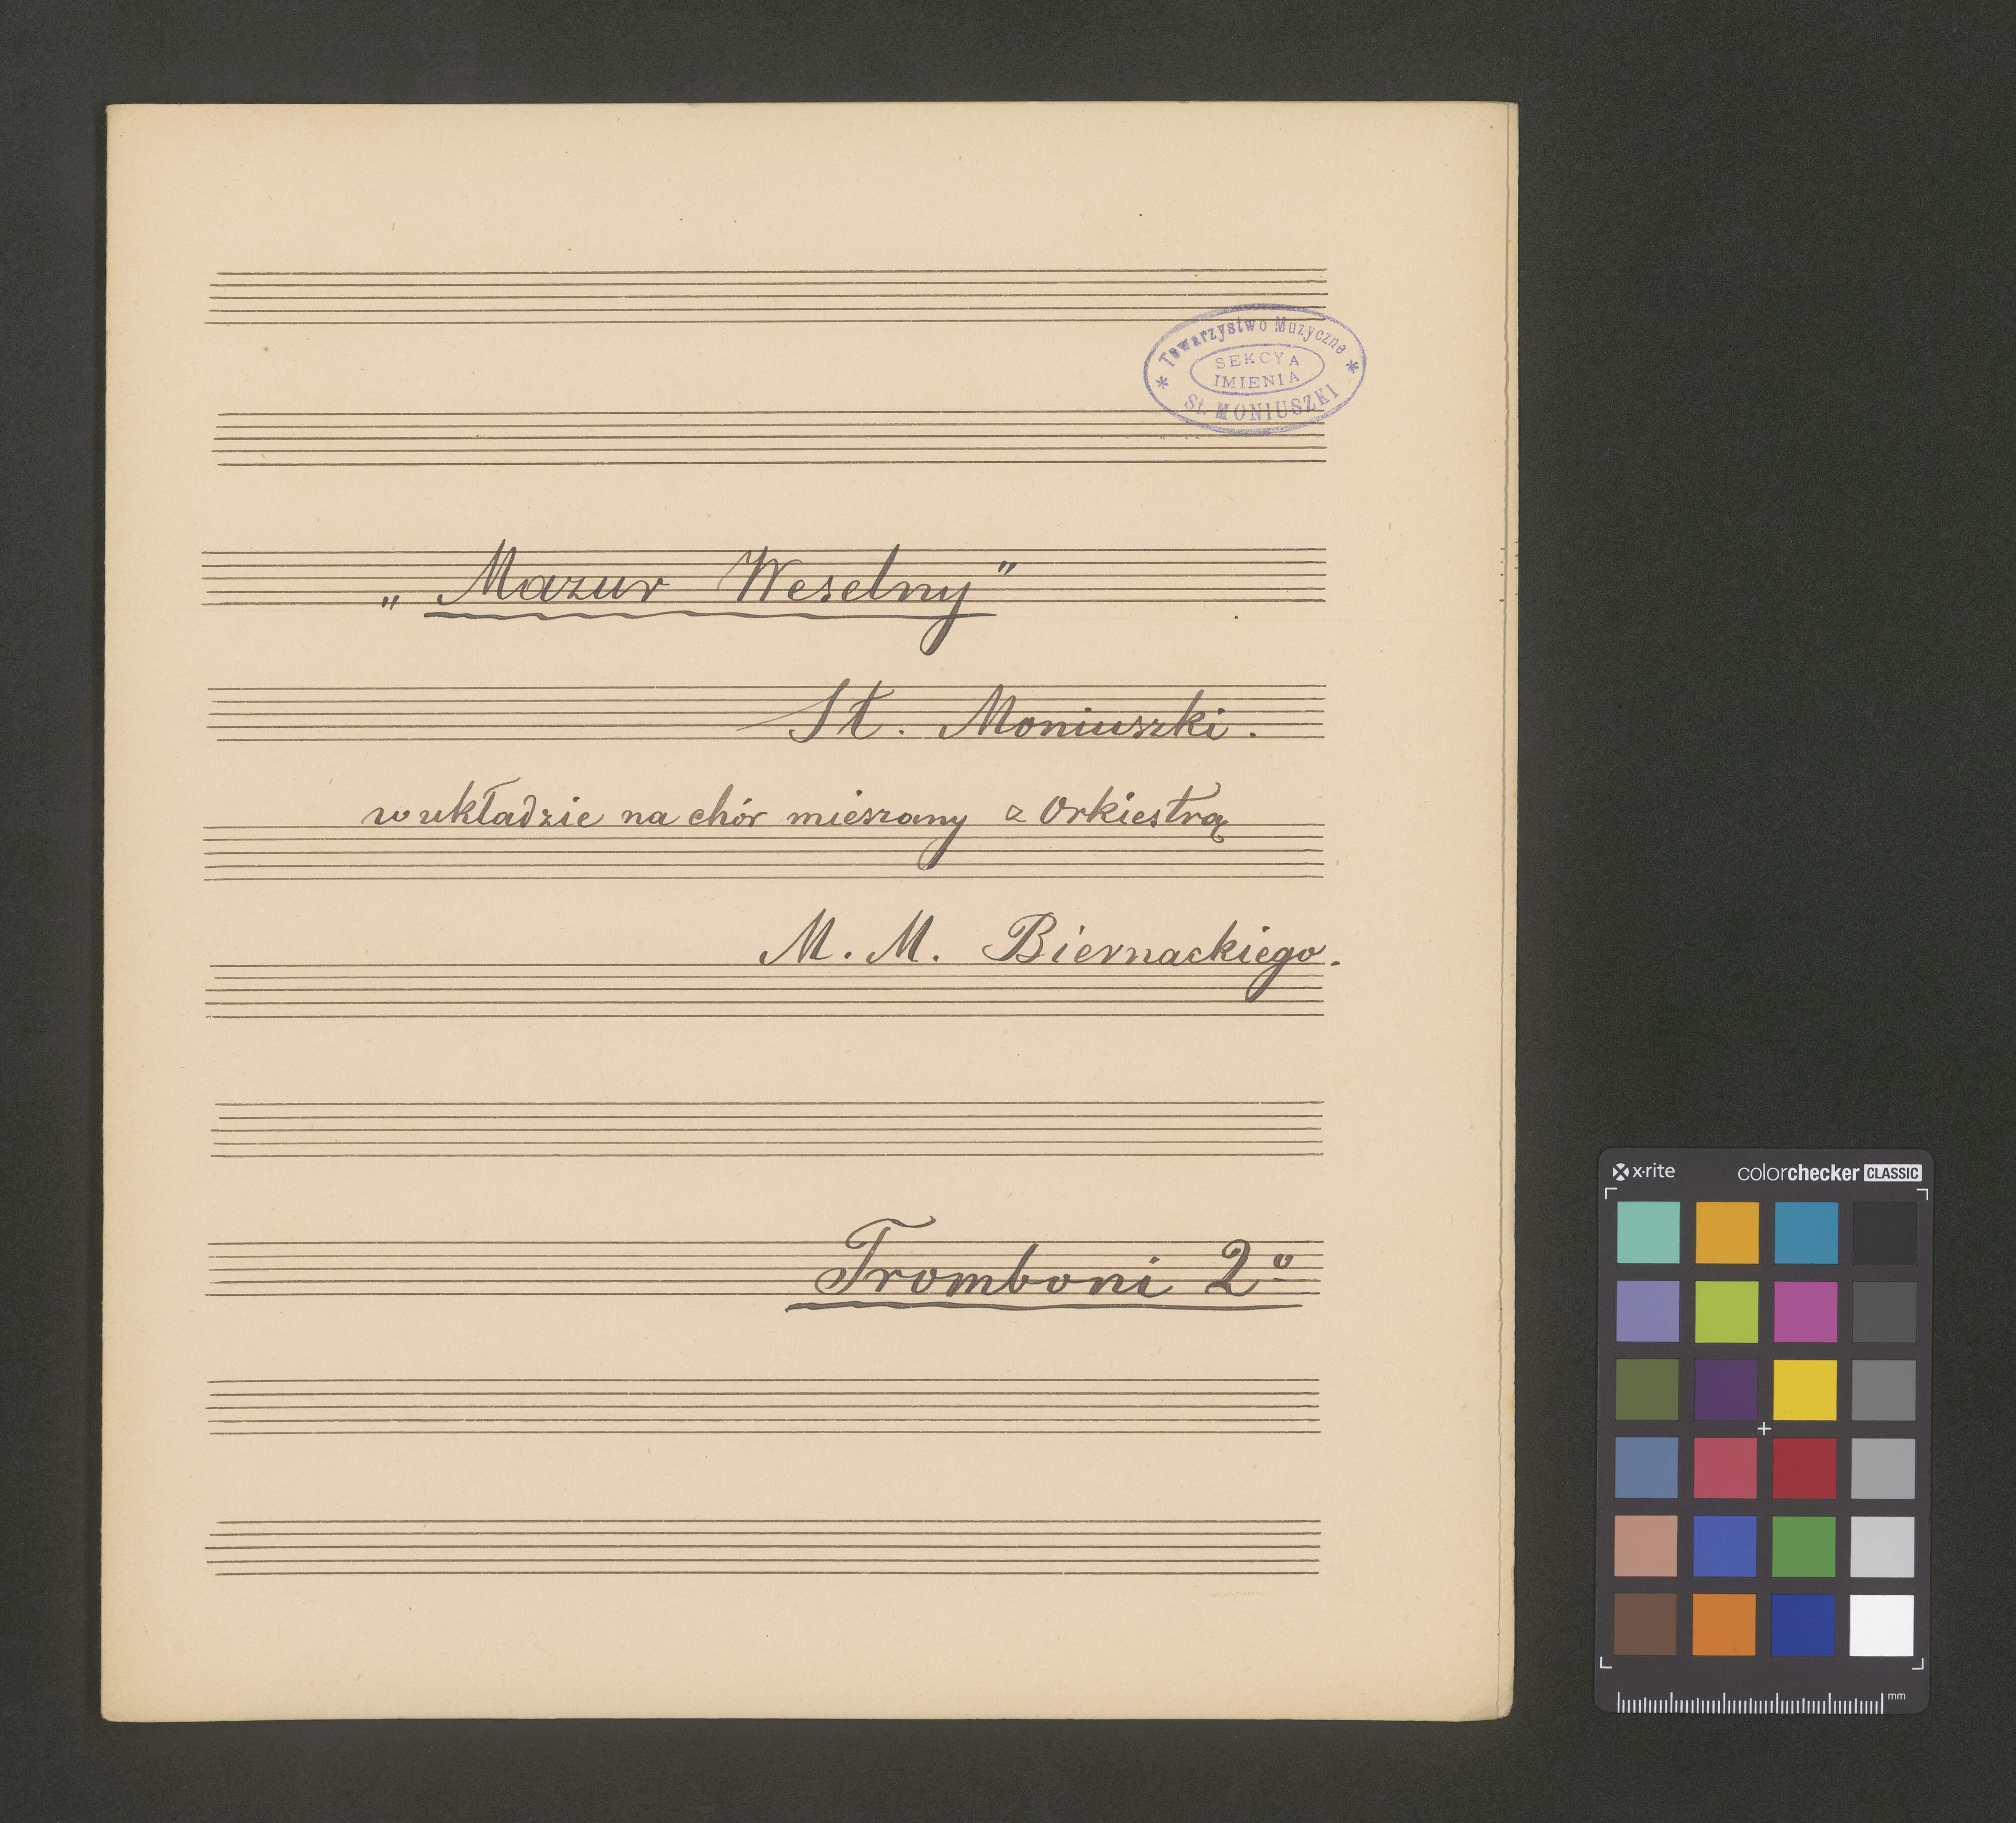 Towarzystwo Muzyczne
SEKCYA
IMIENIA
St. MONIUSZKI
„Mazur Weselny"
St. Moniuszki.
w układzie na chór mieszany z Orkiestrą
M. M. Biernackiego.
Tromboni 2º
x·rite colorchecker CLASSIC
mm